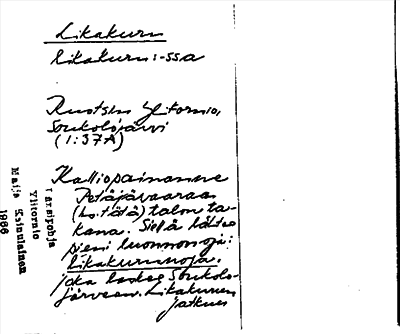 Likakuru
likakuru:-ssa
Ruotsin Ylitornio,
Soukolojärvi
(1:37A)
Kalliopainanne
Petäjävaaraan
(ks. tätä) talon ta-
kana. Sieltä lähtee
pieni luonnonoja:
Likakurunoja,
joka laskee Soukolo-
järveen. Likakurun
jatkuu
Ylitornio
Maija
1966